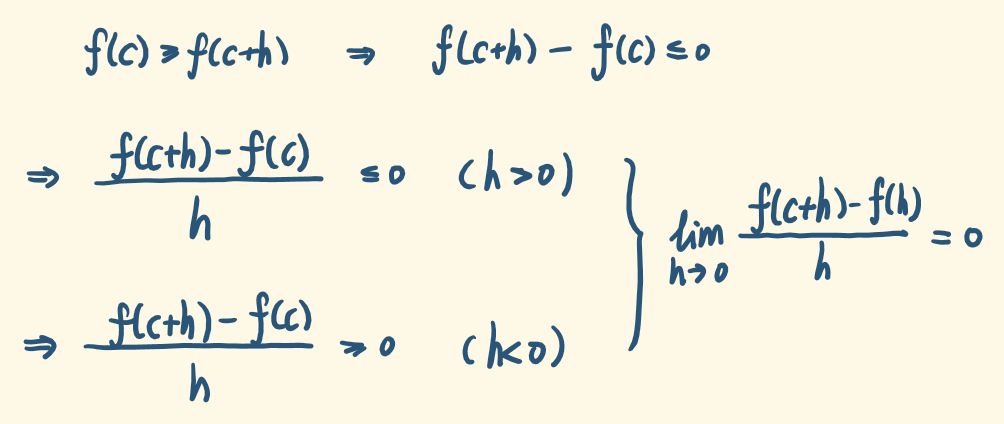 f(c) ≥ f(c+h) ⇒ f(c+h) − f(c) ≤ 0
⇒ \frac{f(c+h) − f(c)}{h} ≤ 0 (h > 0)
⇒ \frac{f(c+h) − f(c)}{h} ≥ 0 (h < 0)
} \lim_{h→0} \frac{f(c+h) − f(h)}{h} = 0